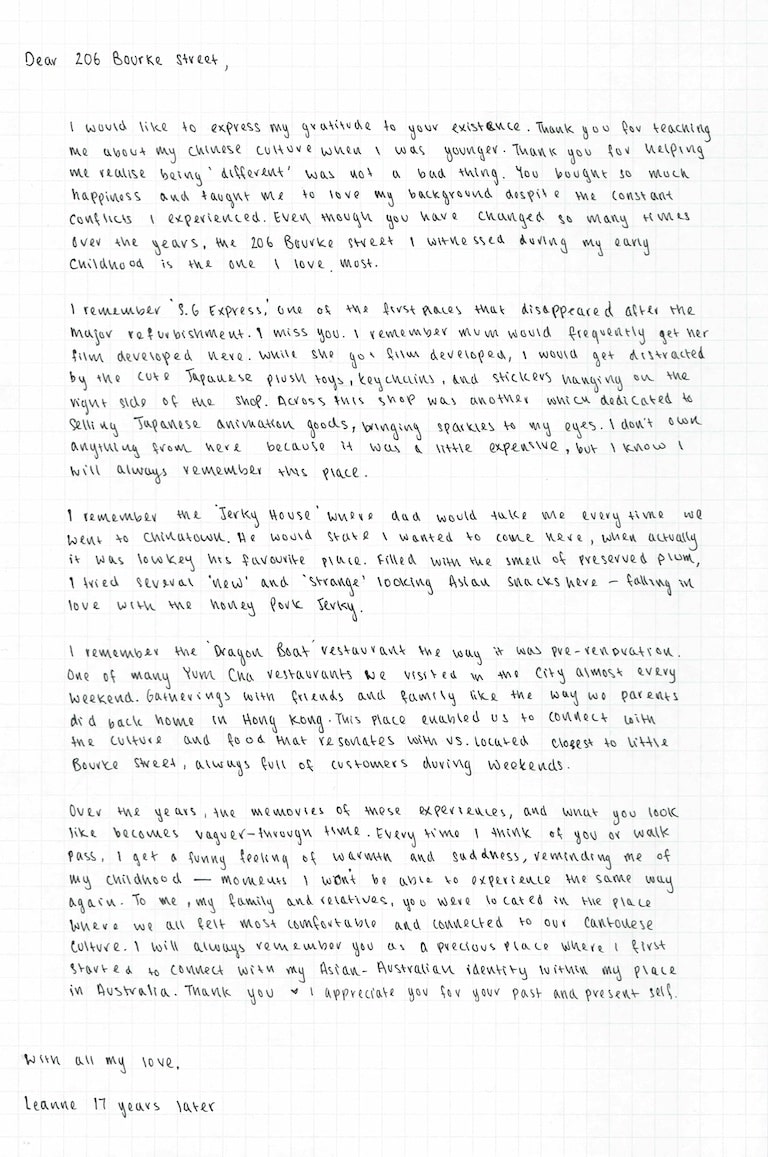 Dear 206 Bourke Street,
I would like to express my gratitude to your existence. Thank you for teaching
me about my Chinese culture when I was younger. Thank you for helping
me realise being 'different' was not a bad thing. You bought so much
happiness and taught me to love my background despite the constant
conflicts I experienced. Even though you have changed so many times
over the years, the 206 Bourke Street I witnessed during my early
childhood is the one I love most.
I remember 'S.G Express,' one of the first places that disappeared after the
major refurbishment. I miss you. I remember mum would frequently get her
film developed here. While she got film developed, I would get distracted
by the cute Japanese plush toys, keychains, and stickers hanging on the
right side of the shop. Across this shop was another which dedicated to
selling Japanese animation goods, bringing sparkles to my eyes. I don't own
anything from here because it was a little expensive, but I know I
will always remember this place.
I remember the 'Jerky House' where dad would take me every time we
went to Chinatown. He would state I wanted to come here, when actually
it was lowkey his favourite place. Filled with the smell of preserved plum,
I tried several 'new' and 'strange' looking Asian snacks here – falling in
love with the honey Pork Jerky.
I remember the 'Dragon Boat' restaurant the way it was pre-renovation.
One of many Yum Cha restaurants we visited in the City almost every
weekend. Gatherings with friends and family like the way wo parents
did back home in Hong Kong. This place enabled us to connect with
the culture and food that resonates with us. Located closest to little
Bourke Street, always full of customers during weekends.
Over the years, the memories of these experiences, and what you look
like becomes vaguer-through time. Every time I think of you or walk
pass, I get a funny feeling of warmth and saddness, reminding me of
my childhood — moments I won't be able to experience the same way
again. To me, my family and relatives, you were located in the place
where we all felt most comfortable and connected to our Cantonese
Culture. I will always remember you as a precious place where I first
started to connect with my Asian-Australian identity within my place
in Australia. Thank you ♥ I appreciate you for your past and present self.
With all my love,
Leanne 17 years later